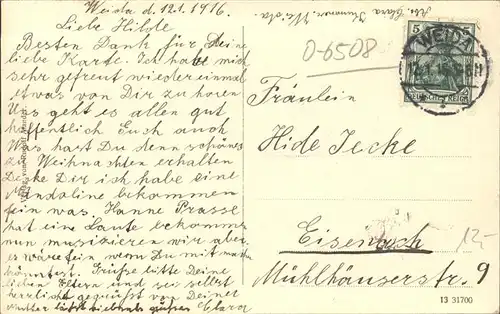 Weida d. 12.1.1916
Liebe Hilde
Besten Dank für Deine
liebe Karte. Ich habe mich
sehr gefreut wiedereinmal
etwas von Dir zu hören
Uns geht es allen gut
hoffentlich Euch auch
Was hast Du denn schönes
zu Weihnachten erhalten
Denke Dir ich habe eine
Mandoline bekommen
fein was. Hanne Prasse
hat eine Laute bekommen
nun musizieren wir aber
es wäre fein, wenn Du mit machen
könntest. Grüße bitte Deine
lieben Eltern und sei selbst
herzlich gegrüßt von Deiner
Mutter läßt vielmals grüßen Clara
Abs. Clara
Weida.
0-6508
5 5
DEUTSCHES REICH
WEIDA
Fräulein
Hilde Jecke
Eisenach
Mühlhäuserstr. 9
12,-
13 31700